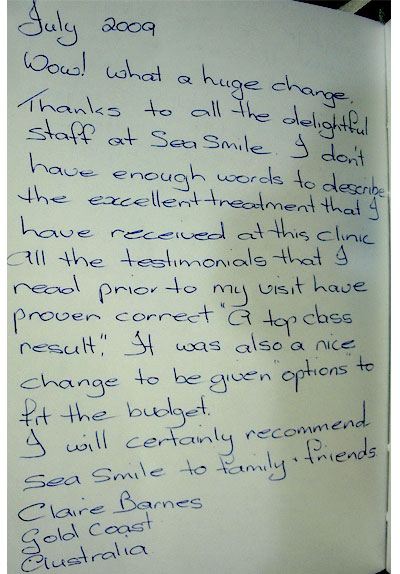 July 2009
Wow! what a huge change.
Thanks to all the delightful
staff at Sea Smile. I don't
have enough words to describe
the excellent treatment that I
have received at this clinic
all the testimonials that I
read prior to my visit have
proven correct "A top class
result." It was also a nice
change to be given "options" to
fit the budget.
I will certainly recommend
Sea Smile to family + friends
Claire Barnes
Gold Coast
Australia